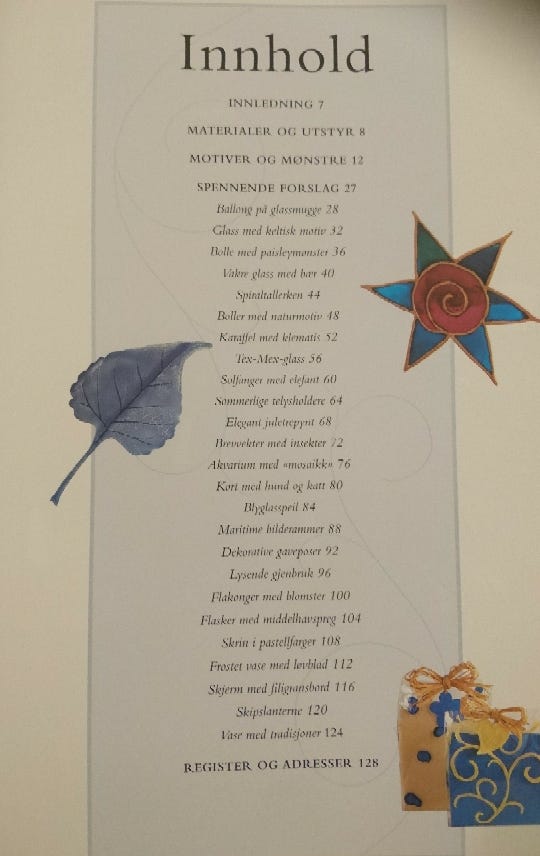 Innhold
INNLEDNING 7
MATERIALER OG UTSTYR 8
MOTIVER OG MØNSTRE 12
SPENNENDE FORSLAG 27
Ballong på glassmugge 28
Glass med keltisk motiv 32
Bolle med paisleymønster 36
Vakre glass med bær 40
Spiraltallerken 44
Boller med naturmotiv 48
Karaffel med klematis 52
Tex-Mex-glass 56
Solfanger med elefant 60
Sommerlige telysholdere 64
Elegant juletrepynt 68
Brevvekter med insekter 72
Akvarium med «mosaikk» 76
Kort med hund og katt 80
Blyglasspeil 84
Maritime bilderammer 88
Dekorative gaveposer 92
Lysende gjenbruk 96
Flakonger med blomster 100
Flasker med middelhavspreg 104
Skrin i pastellfarger 108
Frostet vase med løvblad 112
Skjerm med filigransbord 116
Skipslanterne 120
Vase med tradisjoner 124
REGISTER OG ADRESSER 128